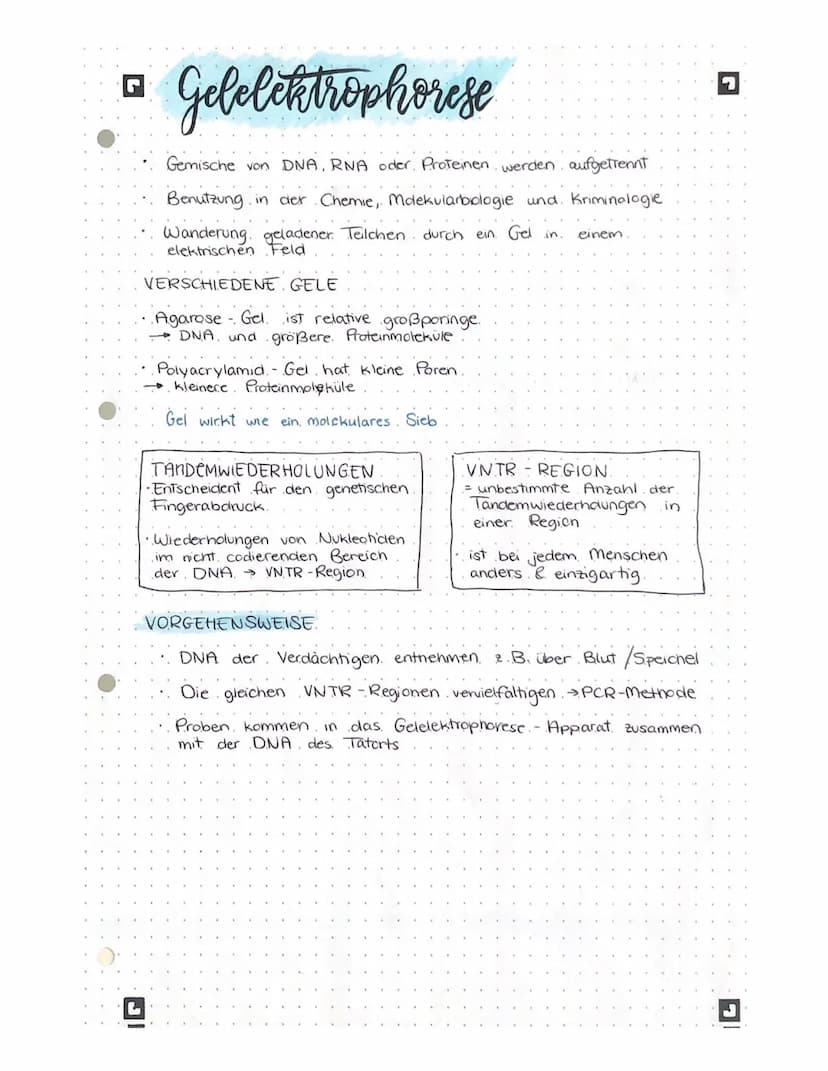 Gelelektrophorese
· Gemische von DNA, RNA oder Proteinen werden aufgetrennt
· Benutzung in der Chemie, Molekularbiologie und Kriminologie
· Wanderung geladener Teilchen durch ein Gel in einem
elektrischen Feld
VERSCHIEDENE GELE
· Agarose - Gel ist relative großporinge
→ DNA und größere Proteinmoleküle
· Polyacrylamid - Gel hat kleine Poren
→ kleinere Proteinmoleküle
Gel wirkt wie ein molekulares Sieb
TANDEMWIEDERHOLUNGEN
· Entscheident für den genetischen
Fingerabdruck
· Wiederholungen von Nukleotiden
im nicht codierenden Bereich
der DNA → VNTR - Region
VNTR - REGION
= unbestimmte Anzahl der
Tandemwiederholungen in
einer Region
· ist bei jedem Menschen
anders & einzigartig
VORGEHENSWEISE
· DNA der Verdächtigen entnehmen z.B. über Blut / Speichel
· Die gleichen VNTR - Regionen vervielfältigen → PCR-Methode
· Proben kommen in das Gelelektrophorese - Apparat zusammen
mit der DNA des Tatorts